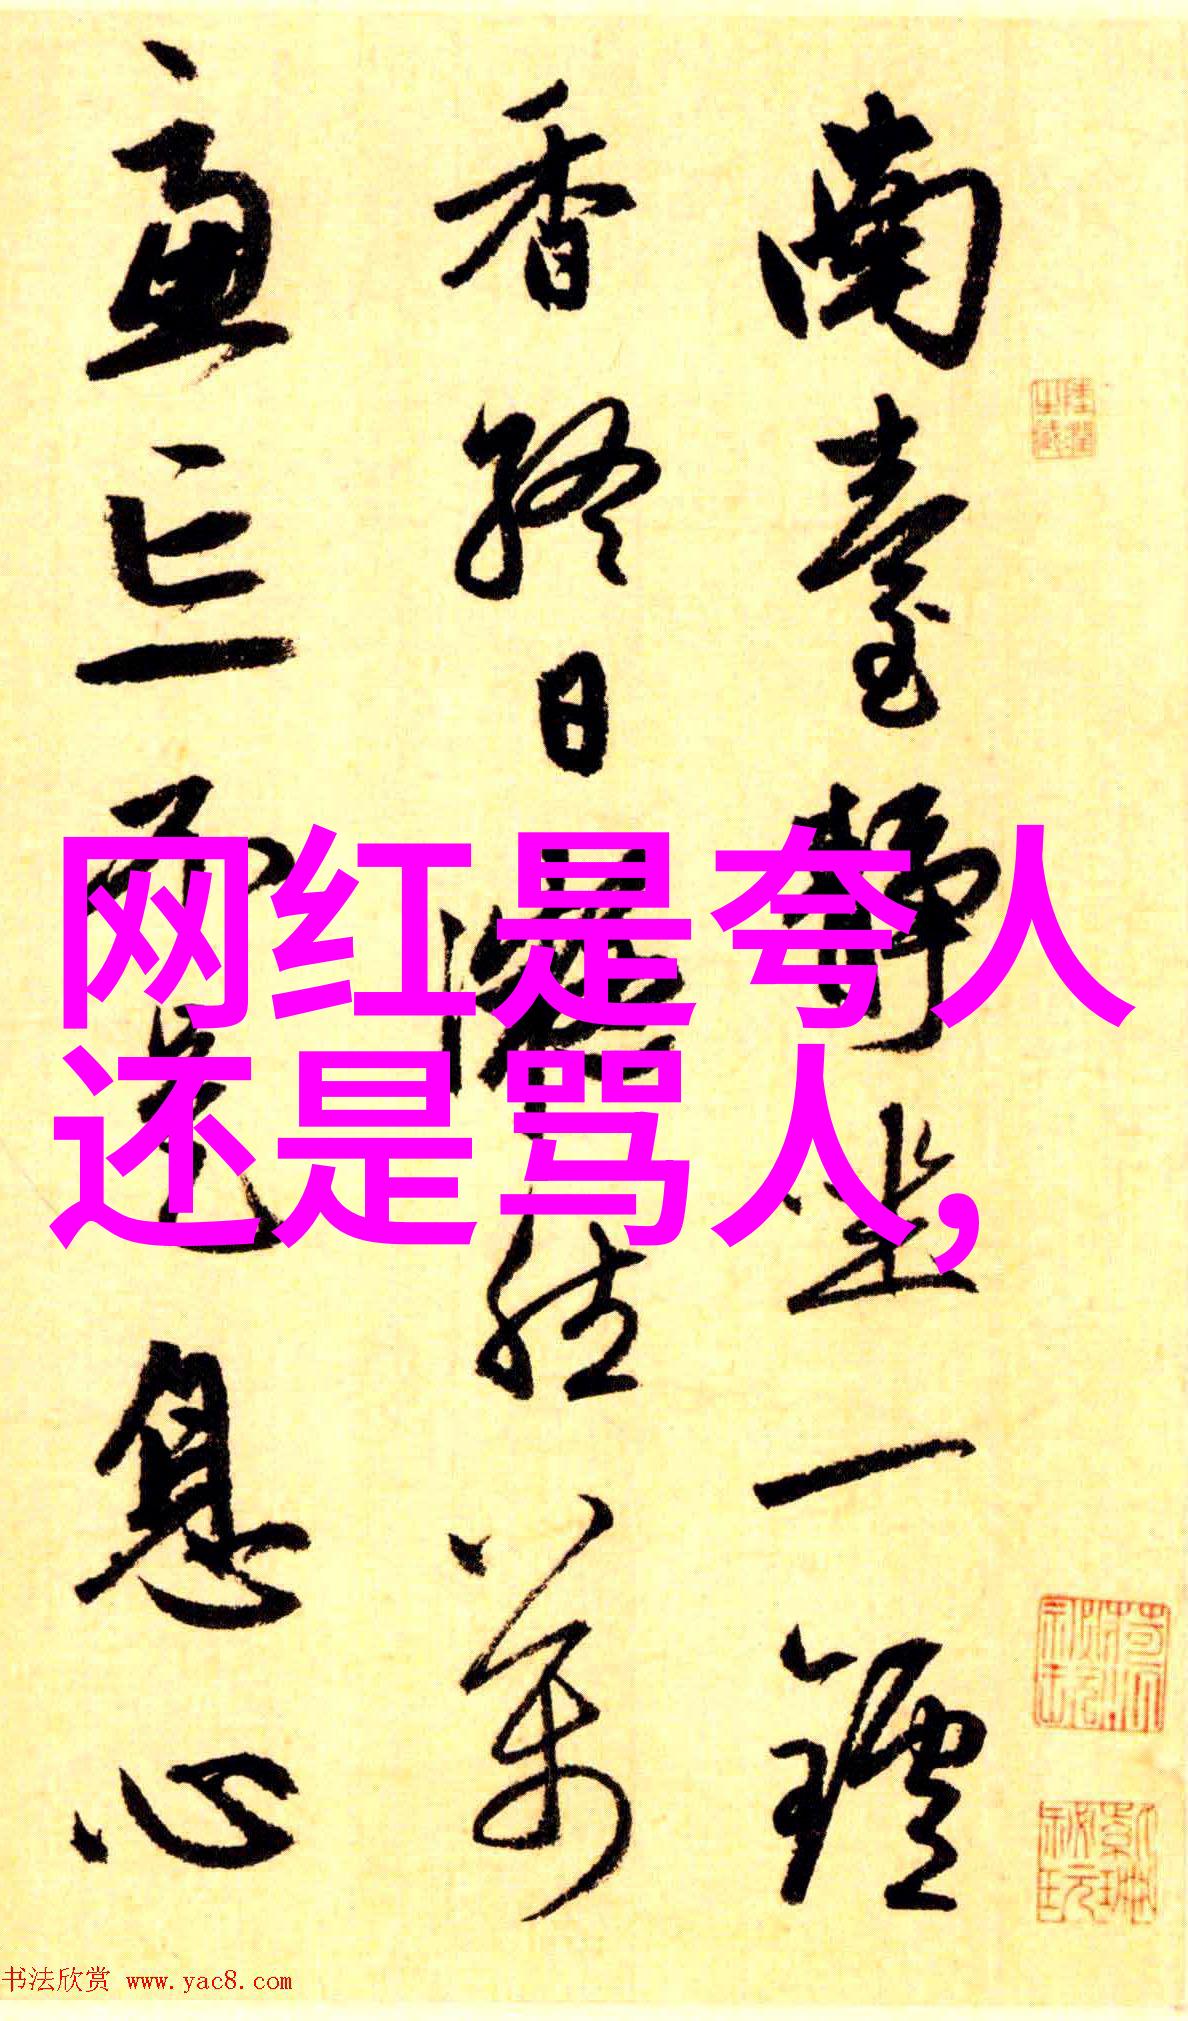 南臺靜坐一鑪
香終日凝然萬
慮忘不是息心
网红是夸人
还是骂人,
书法欣赏 www.yac8.com